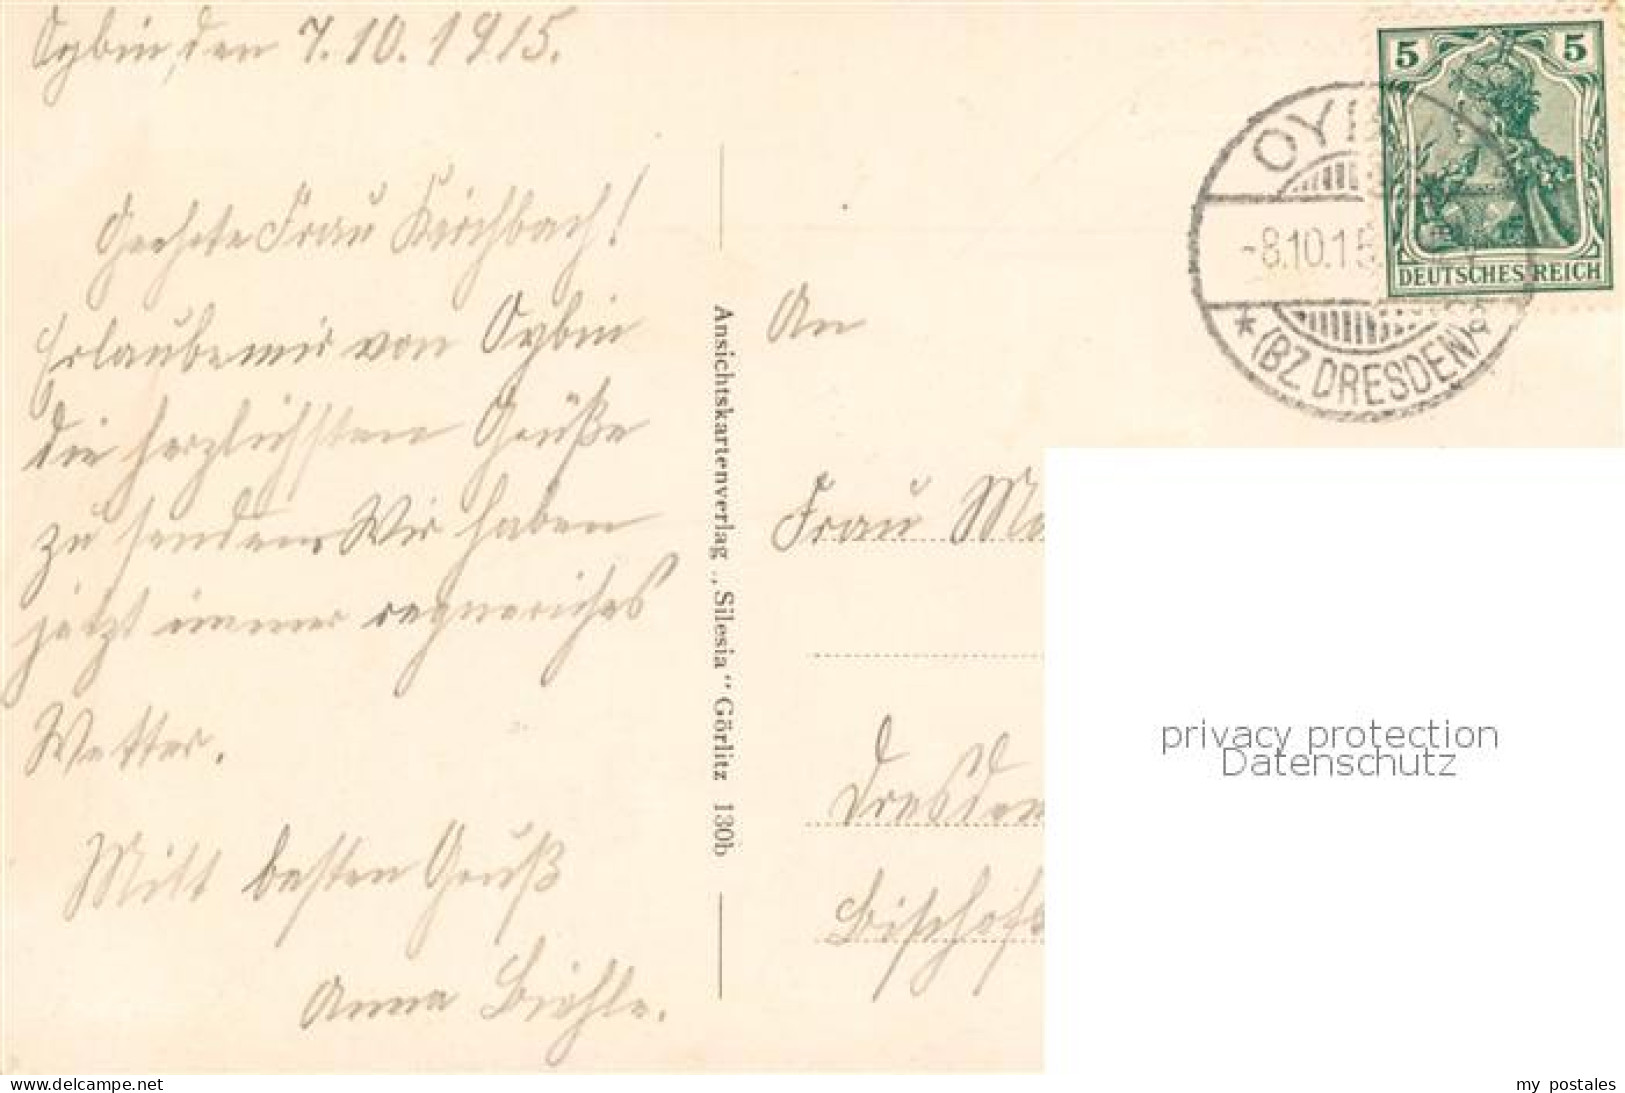 Oybin, den 7.10.1915.
Geehrte Frau Kirchbach!
Erlaube mir von Oybin
die herzlichsten Grüße
zu senden. Wir haben
jetzt immer regnerisches
Wetter.
Mitt besten Gruß
Anna Biehle.
Ansichtskartenverlag „Silesia“ Görlitz 130b
An
Frau Ma
Dresden
Bischofs
5 5
DEUTSCHES REICH
OY
-8.10.15.
* (BZ. DRESDEN)
privacy protection
Datenschutz
www.delcampe.net
my_postales